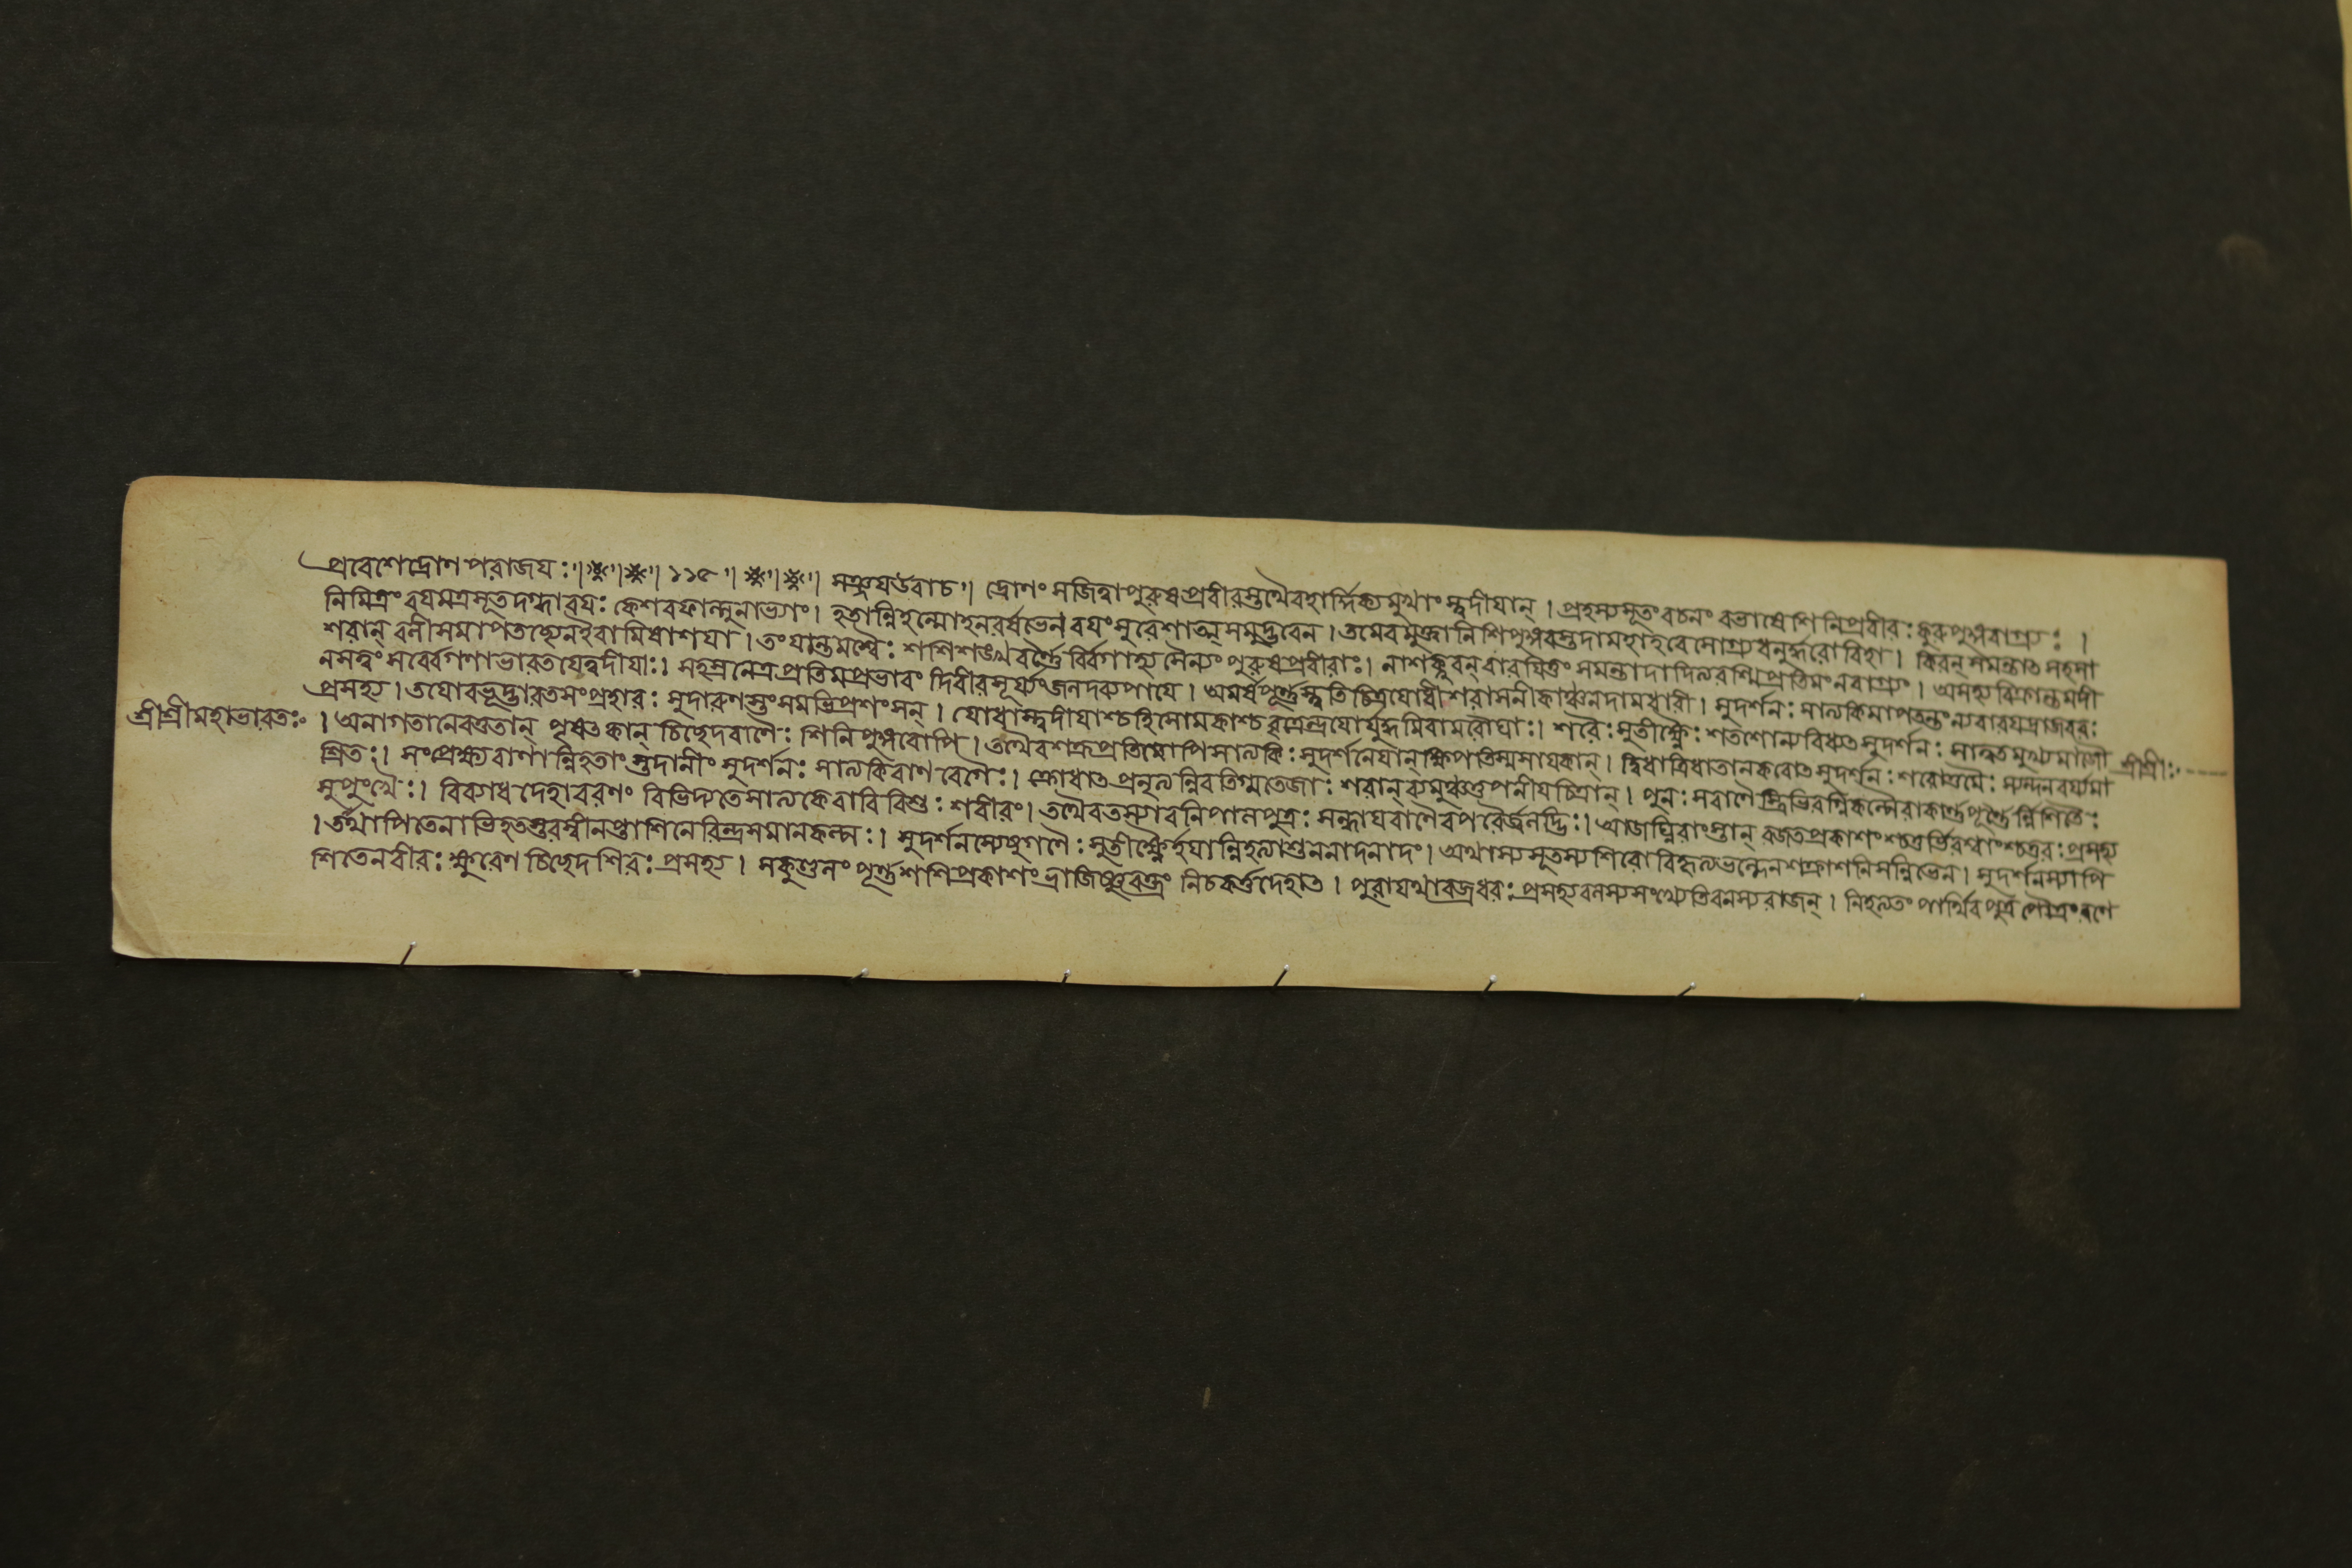 প্রবেশেদ্রোণপরাজযঃ ৷৷ ※ ৷৷ ※ ৷৷ ১১৫ ৷৷ ※ ৷৷ ※ ৷৷ সঞ্জযউবাচ ৷৷ দ্রোণং সজিত্বাপুরুষপ্রবীরস্তথৈবহার্দ্দিক্যমুখাংস্ত্বদীযান্ । প্রহস্যসূতংবচনং বভাষেশিনিপ্রবীরঃ কুরুপুঙ্গবাগ্র্যঃ ।
নিমিত্রংবযমত্রসূতদগ্ধারযঃ কেশবফাল্গুনাভ্যাং । হতান্নিহন্মোহনরর্ষভেনবযংসুরেশাত্মসমুদ্ভবেন । তমেবমুক্ত্বানিশিপুঙ্গবস্তদামহাহবেসোগ্র্যধনুর্দ্ধরোবিহা । কিরন্ সমন্তাৎ সহসা
শরান্ বলীসমাপতচ্ছ্যেনইবামিষাশযা । তংযান্তমশ্বৈঃ শশিশঙ্খবর্ণ্ণৈর্বিবগাহ্যসৈন্যং পুরুষপ্রবীরাঃ । নাশক্নুবন্ বারযিতুং সমন্তাদাদিত্যরশ্মিপ্রতিমংনবাগ্র্যং । অসহ্যবিক্রান্তমদী
নসত্বং সর্ব্বেগণাভারতযেত্বদীযাঃ । সহস্রনেত্রপ্রতিমপ্রভাবং দিবীবসূর্য্যংজলদব্যপাযে । অমর্ষপূর্ণ্ণস্ত্বতিচিত্রযোধীশরাসনীকাঞ্চনদামধারী । সুদর্শনঃ সাত্যকিমাপতন্তংন্যবারযদ্রাজবরঃ
প্রসহ্য । তযোরভূদ্ভারতসংপ্রহারঃ সুদারুণস্তংসমভিপ্রশংসন্ । যোধাস্ত্বদীযাশ্চহিসোমকাশ্চবৃত্রেন্দ্রযোর্যুদ্ধমিবামরৌঘাঃ । শরৈঃ সুতীক্ষ্ণৈঃ শতশোভ্যবিধ্যৎসুদর্শনঃ সাত্বতমুখ্যমাজৌ
শ্রীশ্রীমহাভারতঃ । অনাগতানেবতুতান্ পৃষৎকান্ চিচ্ছেদবাণৈঃ শিনিপুঙ্গবোপি । তথৈবশক্রপ্রতিমোপিসাত্যকিঃ সুদর্শনেযান্ ক্ষিপতিস্মসাযকান্ । দ্বিধাত্রিধাতানকরোৎসুদর্শনঃ শরোত্তমৈঃ স্যন্দনবর্য্যমা শ্রীশ্রীঃ
শ্রিতঃ । সংপ্রেক্ষ্যবাণান্নিহতাংস্তদানীং সুদর্শনঃ সাত্যকিবাণবেগৈঃ । ক্রোধাৎপ্রজ্বলন্নিবতিগ্মতেজাঃ শরান্ ব্যমুঞ্চত্তপনীযচিত্রান্ । পুনঃ সবাণৈস্ত্রিভিরগ্নিকল্পৈরাকর্ণ্ণপূর্ণ্ণৈর্ন্নিশিতৈঃ
সুপুংখৈঃ । বিব্যাধদেহাবরণং বিভিদ্যতেসাত্যকেরাবিবিশুঃ শরীরং । তথৈবতস্যাবনিপালপুত্রঃ সন্ধাযবাণৈরপরৈর্জ্বলদ্ভিঃ । আজঘ্নিরাংস্তান্ রজতপ্রকাশংশ্চতুর্ভিরশ্বাংশ্চতুরঃ প্রসহ্য
। তথাপিতেনাভিহতস্তরস্বীনপ্তাশিনেরিন্দ্রসমানকল্পঃ । সুদর্শনস্যেষুগণৈঃ সুতীক্ষ্ণৈর্হযান্নিহত্যাশুননাদনাদং । অথাস্যসূতস্যশিরোবিহৃত্যভল্লেনশক্রাশনিসন্নিভেন । সুদর্শনস্যাপি
শিতেনবীরঃ ক্ষুরেণ চিচ্ছেদশিরঃ প্রসহ্য । সকুণ্ডলং পূর্ণ্ণশশিপ্রকাশং ভ্রাজিষ্ণুবক্ত্রং নিচকর্ত্তদেহাৎ । পুরাযথাবজ্রধরঃ প্রসহ্যবলস্যসংখ্যেতিবলস্যরাজন্ । নিহত্যতং পার্থিবপুত্রপৌত্রংরণে